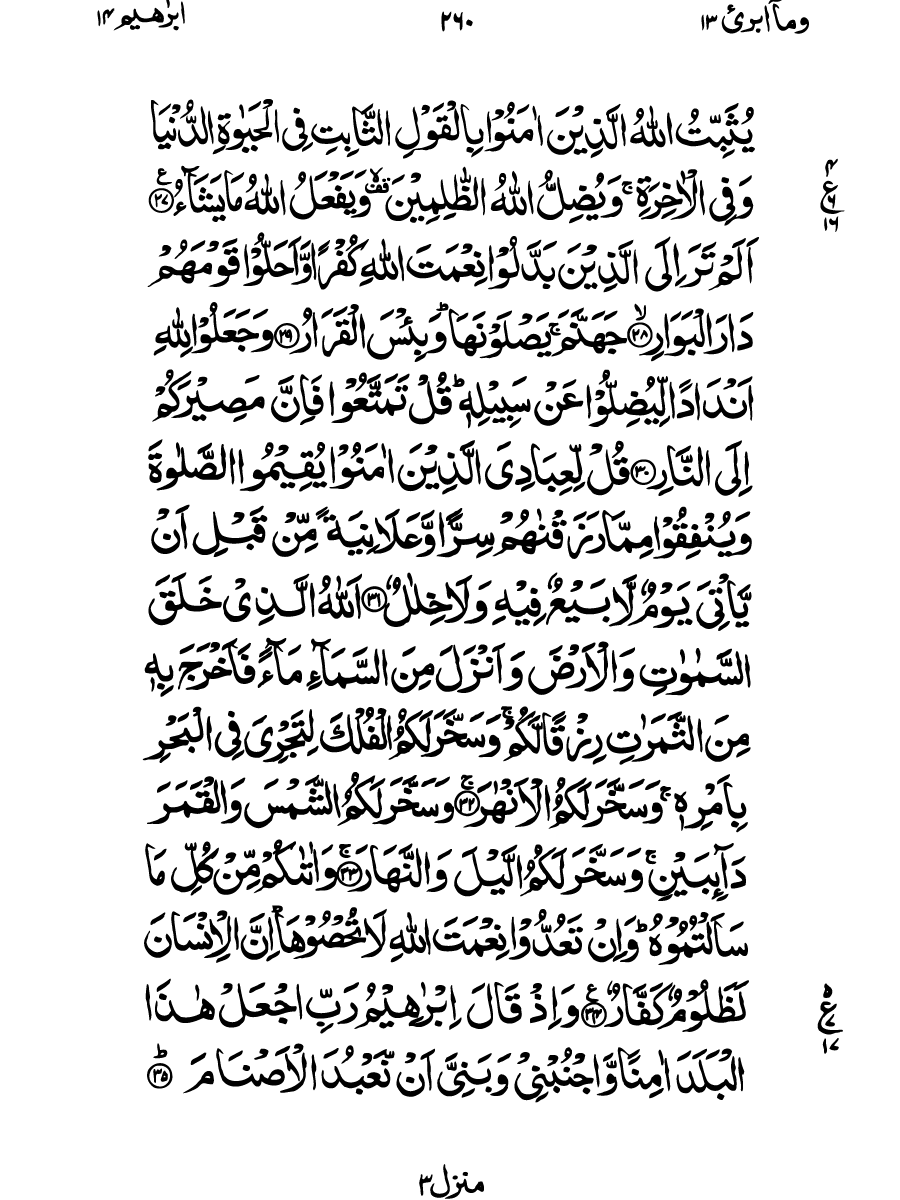 ابرٰهيم ١٤ ٢٦٠ ومآ ابرئ ١٣
يُثَبِّتُ اللّٰهُ الَّذِيْنَ اٰمَنُوْا بِالْقَوْلِ الثَّابِتِ فِى الْحَيٰوةِ الدُّنْيَا
وَفِى الْاٰخِرَةِ ۚ وَيُضِلُّ اللّٰهُ الظّٰلِمِيْنَ ۙ قف وَيَفْعَلُ اللّٰهُ مَا يَشَآءُ ع ﴿٢٧﴾
اَلَمْ تَرَ اِلَى الَّذِيْنَ بَدَّلُوْا نِعْمَتَ اللّٰهِ كُفْرًا وَّاَحَلُّوْا قَوْمَهُمْ
دَارَ الْبَوَارِ ۙ ﴿٢٨﴾ جَهَنَّمَ ۚ يَصْلَوْنَهَا ؕ وَبِئْسَ الْقَرَارُ ﴿٢٩﴾ وَجَعَلُوْا لِلّٰهِ
اَنْدَادًا لِّيُضِلُّوْا عَنْ سَبِيْلِهٖ ؕ قُلْ تَمَتَّعُوْا فَاِنَّ مَصِيْرَكُمْ
اِلَى النَّارِ ﴿٣٠﴾ قُلْ لِّعِبَادِىَ الَّذِيْنَ اٰمَنُوْا يُقِيْمُوا الصَّلٰوةَ
وَيُنْفِقُوْا مِمَّا رَزَقْنٰهُمْ سِرًّا وَّعَلَانِيَةً مِّنْ قَبْلِ اَنْ
يَّاْتِىَ يَوْمٌ لَّا بَيْعٌ فِيْهِ وَلَا خِلٰلٌ ﴿٣١﴾ اَللّٰهُ الَّذِىْ خَلَقَ
السَّمٰوٰتِ وَالْاَرْضَ وَاَنْزَلَ مِنَ السَّمَآءِ مَآءً فَاَخْرَجَ بِهٖ
مِنَ الثَّمَرٰتِ رِزْقًا لَّكُمْ ۚ وَسَخَّرَ لَكُمُ الْفُلْكَ لِتَجْرِىَ فِى الْبَحْرِ
بِاَمْرِهٖ ۚ وَسَخَّرَ لَكُمُ الْاَنْهٰرَ ۚ ﴿٣٢﴾ وَسَخَّرَ لَكُمُ الشَّمْسَ وَالْقَمَرَ
دَآئِبَيْنِ ۚ وَسَخَّرَ لَكُمُ الَّيْلَ وَالنَّهَارَ ۚ ﴿٣٣﴾ وَاٰتٰىكُمْ مِّنْ كُلِّ مَا
سَاَلْتُمُوْهُ ؕ وَاِنْ تَعُدُّوْا نِعْمَتَ اللّٰهِ لَا تُحْصُوْهَا ؕ اِنَّ الْاِنْسَانَ
لَظَلُوْمٌ كَفَّارٌ ع ﴿٣٤﴾ وَاِذْ قَالَ اِبْرٰهِيْمُ رَبِّ اجْعَلْ هٰذَا
الْبَلَدَ اٰمِنًا وَّاجْنُبْنِىْ وَبَنِىَّ اَنْ نَّعْبُدَ الْاَصْنَامَ ؕ ﴿٣٥﴾
٤
ع
٦
١٦
٥
ع
٧
١٧
منزل ٣